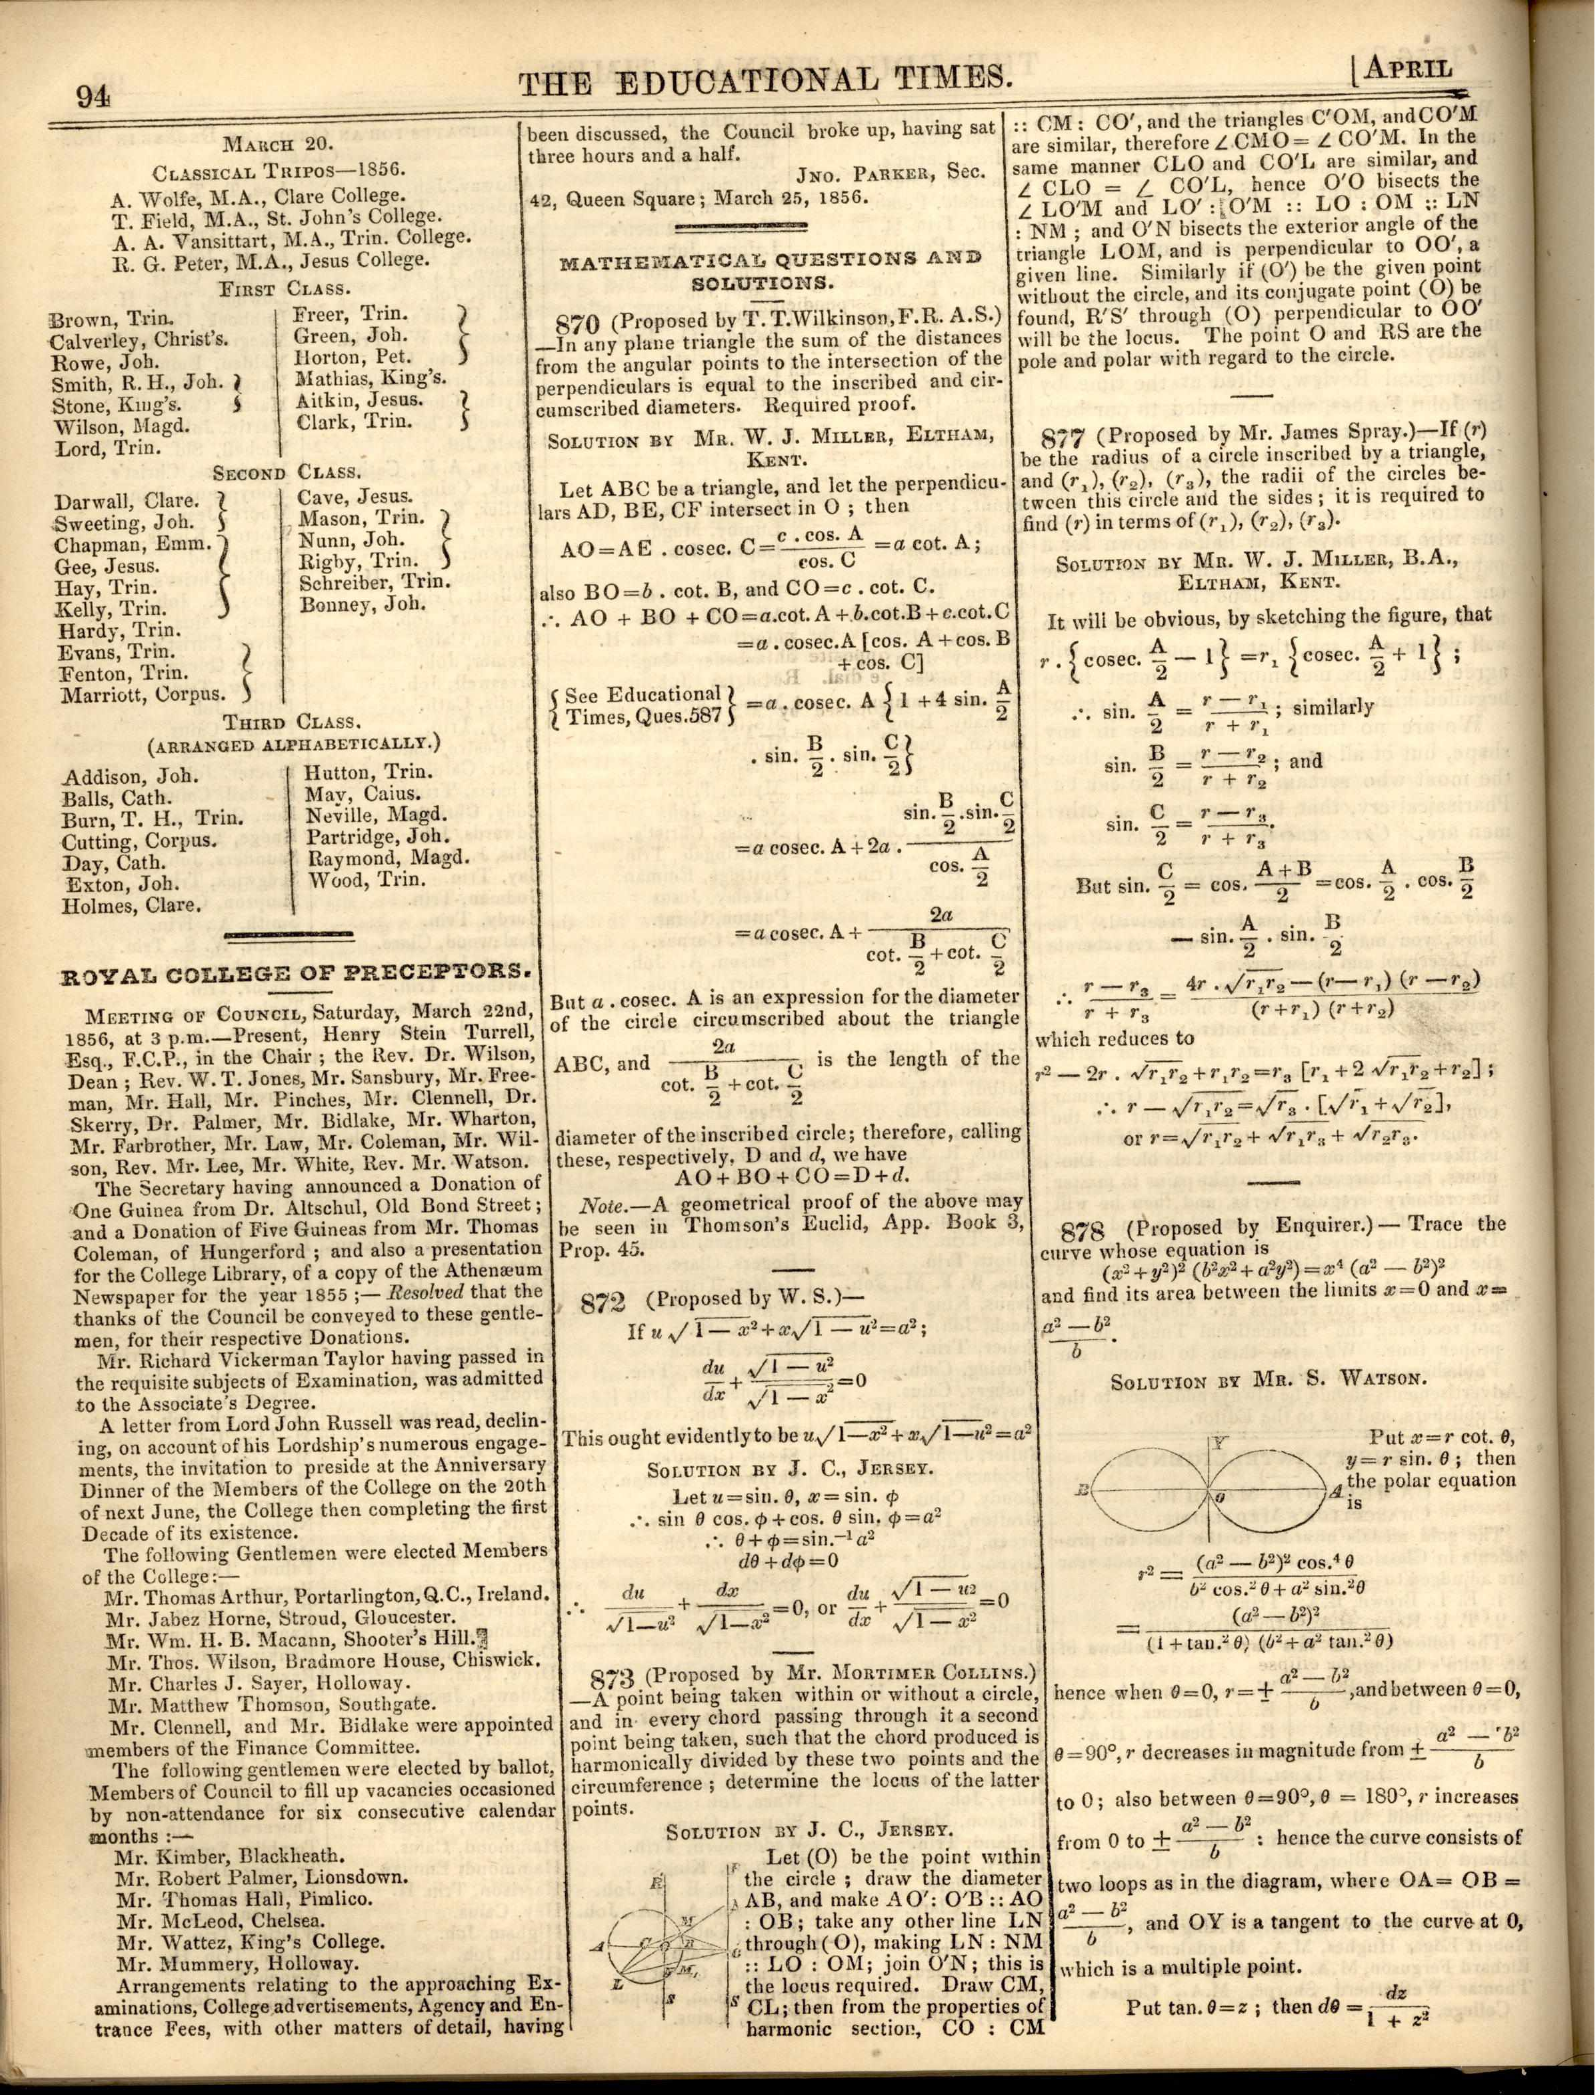 94
THE EDUCATIONAL TIMES.
[APRIL
MARCH 20.
CLASSICAL TRIPOS—1856.
A. Wolfe, M.A., Clare College.
T. Field, M.A., St. John's College.
A. A. Vansittart, M.A., Trin. College.
R. G. Peter, M.A., Jesus College.
FIRST CLASS.
Brown, Trin.
Calverley, Christ's.
Rowe, Joh.
Smith, R. H., Joh. }
Stone, King's. }
Wilson, Magd.
Lord, Trin.
Freer, Trin. }
Green, Joh. }
Horton, Pet. }
Mathias, King's.
Aitkin, Jesus. }
Clark, Trin. }
SECOND CLASS.
Darwall, Clare. }
Sweeting, Joh. }
Chapman, Emm. }
Gee, Jesus. }
Hay, Trin. }
Kelly, Trin. }
Hardy, Trin.
Evans, Trin. }
Fenton, Trin. }
Marriott, Corpus. }
Cave, Jesus.
Mason, Trin. }
Nunn, Joh. }
Rigby, Trin. }
Schreiber, Trin.
Bonney, Joh.
THIRD CLASS.
(ARRANGED ALPHABETICALLY.)
Addison, Joh.
Balls, Cath.
Burn, T. H., Trin.
Cutting, Corpus.
Day, Cath.
Exton, Joh.
Holmes, Clare.
Hutton, Trin.
May, Caius.
Neville, Magd.
Partridge, Joh.
Raymond, Magd.
Wood, Trin.
ROYAL COLLEGE OF PRECEPTORS.
MEETING OF COUNCIL, Saturday, March 22nd,
1856, at 3 p.m.—Present, Henry Stein Turrell,
Esq., F.C.P., in the Chair; the Rev. Dr. Wilson,
Dean; Rev. W. T. Jones, Mr. Sansbury, Mr. Free-
man, Mr. Hall, Mr. Pinches, Mr. Clennell, Dr.
Skerry, Dr. Palmer, Mr. Bidlake, Mr. Wharton,
Mr. Farbrother, Mr. Law, Mr. Coleman, Mr. Wil-
son, Rev. Mr. Lee, Mr. White, Rev. Mr. Watson.
The Secretary having announced a Donation of
One Guinea from Dr. Altschul, Old Bond Street;
and a Donation of Five Guineas from Mr. Thomas
Coleman, of Hungerford; and also a presentation
for the College Library, of a copy of the Athenæum
Newspaper for the year 1855;—Resolved that the
thanks of the Council be conveyed to these gentle-
men, for their respective Donations.
Mr. Richard Vickerman Taylor having passed in
the requisite subjects of Examination, was admitted
to the Associate's Degree.
A letter from Lord John Russell was read, declin-
ing, on account of his Lordship's numerous engage-
ments, the invitation to preside at the Anniversary
Dinner of the Members of the College on the 20th
of next June, the College then completing the first
Decade of its existence.
The following Gentlemen were elected Members
of the College:—
Mr. Thomas Arthur, Portarlington, Q.C., Ireland.
Mr. Jabez Horne, Stroud, Gloucester.
Mr. Wm. H. B. Macann, Shooter's Hill.
Mr. Thos. Wilson, Bradmore House, Chiswick.
Mr. Charles J. Sayer, Holloway.
Mr. Matthew Thomson, Southgate.
Mr. Clennell, and Mr. Bidlake were appointed
members of the Finance Committee.
The following gentlemen were elected by ballot,
Members of Council to fill up vacancies occasioned
by non-attendance for six consecutive calendar
months:—
Mr. Kimber, Blackheath.
Mr. Robert Palmer, Lionsdown.
Mr. Thomas Hall, Pimlico.
Mr. McLeod, Chelsea.
Mr. Wattez, King's College.
Mr. Mummery, Holloway.
Arrangements relating to the approaching Ex-
aminations, College advertisements, Agency and En-
trance Fees, with other matters of detail, having
been discussed, the Council broke up, having sat
three hours and a half.
JNO. PARKER, Sec.
42, Queen Square; March 25, 1856.
MATHEMATICAL QUESTIONS AND
SOLUTIONS.
870 (Proposed by T. T. Wilkinson, F.R.A.S.)
—In any plane triangle the sum of the distances
from the angular points to the intersection of the
perpendiculars is equal to the inscribed and cir-
cumscribed diameters. Required proof.
SOLUTION BY MR. W. J. MILLER, ELTHAM,
KENT.
Let ABC be a triangle, and let the perpendicu-
lars AD, BE, CF intersect in O; then
AO = AE . cosec. C = c . cos. A / cos. C = a cot. A;
also BO = b . cot. B, and CO = c . cot. C.
∴ AO + BO + CO = a.cot. A + b.cot. B + c.cot. C
= a . cosec. A [cos. A + cos. B
+ cos. C]
{See Educational Times, Ques. 587} = a . cosec. A {1 + 4 sin. A/2
. sin. B/2 . sin. C/2}
= a cosec. A + 2a . sin. B/2 . sin. C/2 / cos. A/2
= a cosec. A + 2a / (cot. B/2 + cot. C/2)
But a . cosec. A is an expression for the diameter
of the circle circumscribed about the triangle
ABC, and 2a / (cot. B/2 + cot. C/2) is the length of the
diameter of the inscribed circle; therefore, calling
these, respectively, D and d, we have
AO + BO + CO = D + d.
Note.—A geometrical proof of the above may
be seen in Thomson's Euclid, App. Book 3,
Prop. 45.
872 (Proposed by W. S.)—
If u √1 — x² + x √1 — u² = a²;
du/dx + √1 — u² / √1 — x² = 0
This ought evidently to be u√1—x² + x√1—u² = a²
SOLUTION BY J. C., JERSEY.
Let u = sin. θ, x = sin. φ
∴ sin θ cos. φ + cos. θ sin. φ = a²
∴ θ + φ = sin.⁻¹ a²
dθ + dφ = 0
∴ du/√1—u² + dx/√1—x² = 0, or du/dx + √1 — u² / √1 — x² = 0
873 (Proposed by Mr. MORTIMER COLLINS.)
—A point being taken within or without a circle,
and in every chord passing through it a second
point being taken, such that the chord produced is
harmonically divided by these two points and the
circumference; determine the locus of the latter
points.
SOLUTION BY J. C., JERSEY.
Let (O) be the point within
the circle; draw the diameter
AB, and make AO' : O'B :: AO
: OB; take any other line LN
through (O), making LN : NM
:: LO : OM; join O'N; this is
the locus required. Draw CM,
CL; then from the properties of
harmonic section, CO : CM
:: CM : CO', and the triangles C'OM, and CO'M
are similar, therefore ∠ CMO = ∠ CO'M. In the
same manner CLO and CO'L are similar, and
∠ CLO = ∠ CO'L, hence O'O bisects the
∠ LO'M and LO' : O'M :: LO : OM :: LN
: NM; and O'N bisects the exterior angle of the
triangle LOM, and is perpendicular to OO', a
given line. Similarly if (O') be the given point
without the circle, and its conjugate point (O) be
found, R'S' through (O) perpendicular to OO'
will be the locus. The point O and RS are the
pole and polar with regard to the circle.
877 (Proposed by Mr. James Spray.)—If (r)
be the radius of a circle inscribed by a triangle,
and (r₁), (r₂), (r₃), the radii of the circles be-
tween this circle and the sides; it is required to
find (r) in terms of (r₁), (r₂), (r₃).
SOLUTION BY MR. W. J. MILLER, B.A.,
ELTHAM, KENT.
It will be obvious, by sketching the figure, that
r . {cosec. A/2 — 1} = r₁ {cosec. A/2 + 1};
∴ sin. A/2 = r — r₁ / r + r₁; similarly
sin. B/2 = r — r₂ / r + r₂; and
sin. C/2 = r — r₃ / r + r₃.
But sin. C/2 = cos. A+B/2 = cos. A/2 . cos. B/2
— sin. A/2 . sin. B/2
∴ r — r₃ / r + r₃ = 4r . √r₁r₂ — (r — r₁) (r — r₂) / (r + r₁) (r + r₂)
which reduces to
r² — 2r . √r₁r₂ + r₁r₂ = r₃ [r₁ + 2 √r₁r₂ + r₂];
∴ r — √r₁r₂ = √r₃ . [√r₁ + √r₂],
or r = √r₁r₂ + √r₁r₃ + √r₂r₃.
878 (Proposed by Enquirer.)—Trace the
curve whose equation is
(x² + y²)² (b²x² + a²y²) = x⁴ (a² — b²)²
and find its area between the limits x = 0 and x =
a² — b² / b.
SOLUTION BY MR. S. WATSON.
Y
B
A
O
Put x = r cot. θ,
y = r sin. θ; then
the polar equation
is
r² = (a² — b²)² cos.⁴ θ / b² cos.² θ + a² sin.² θ
= (a² — b²)² / (1 + tan.² θ) (b² + a² tan.² θ)
hence when θ = 0, r = ± a² — b² / b, and between θ = 0,
θ = 90°, r decreases in magnitude from ± a² — b² / b
to 0; also between θ = 90°, θ = 180°, r increases
from 0 to ± a² — b² / b : hence the curve consists of
two loops as in the diagram, where OA = OB =
a² — b² / b, and OY is a tangent to the curve at 0,
which is a multiple point.
Put tan. θ = z; then dθ = dz / 1 + z²